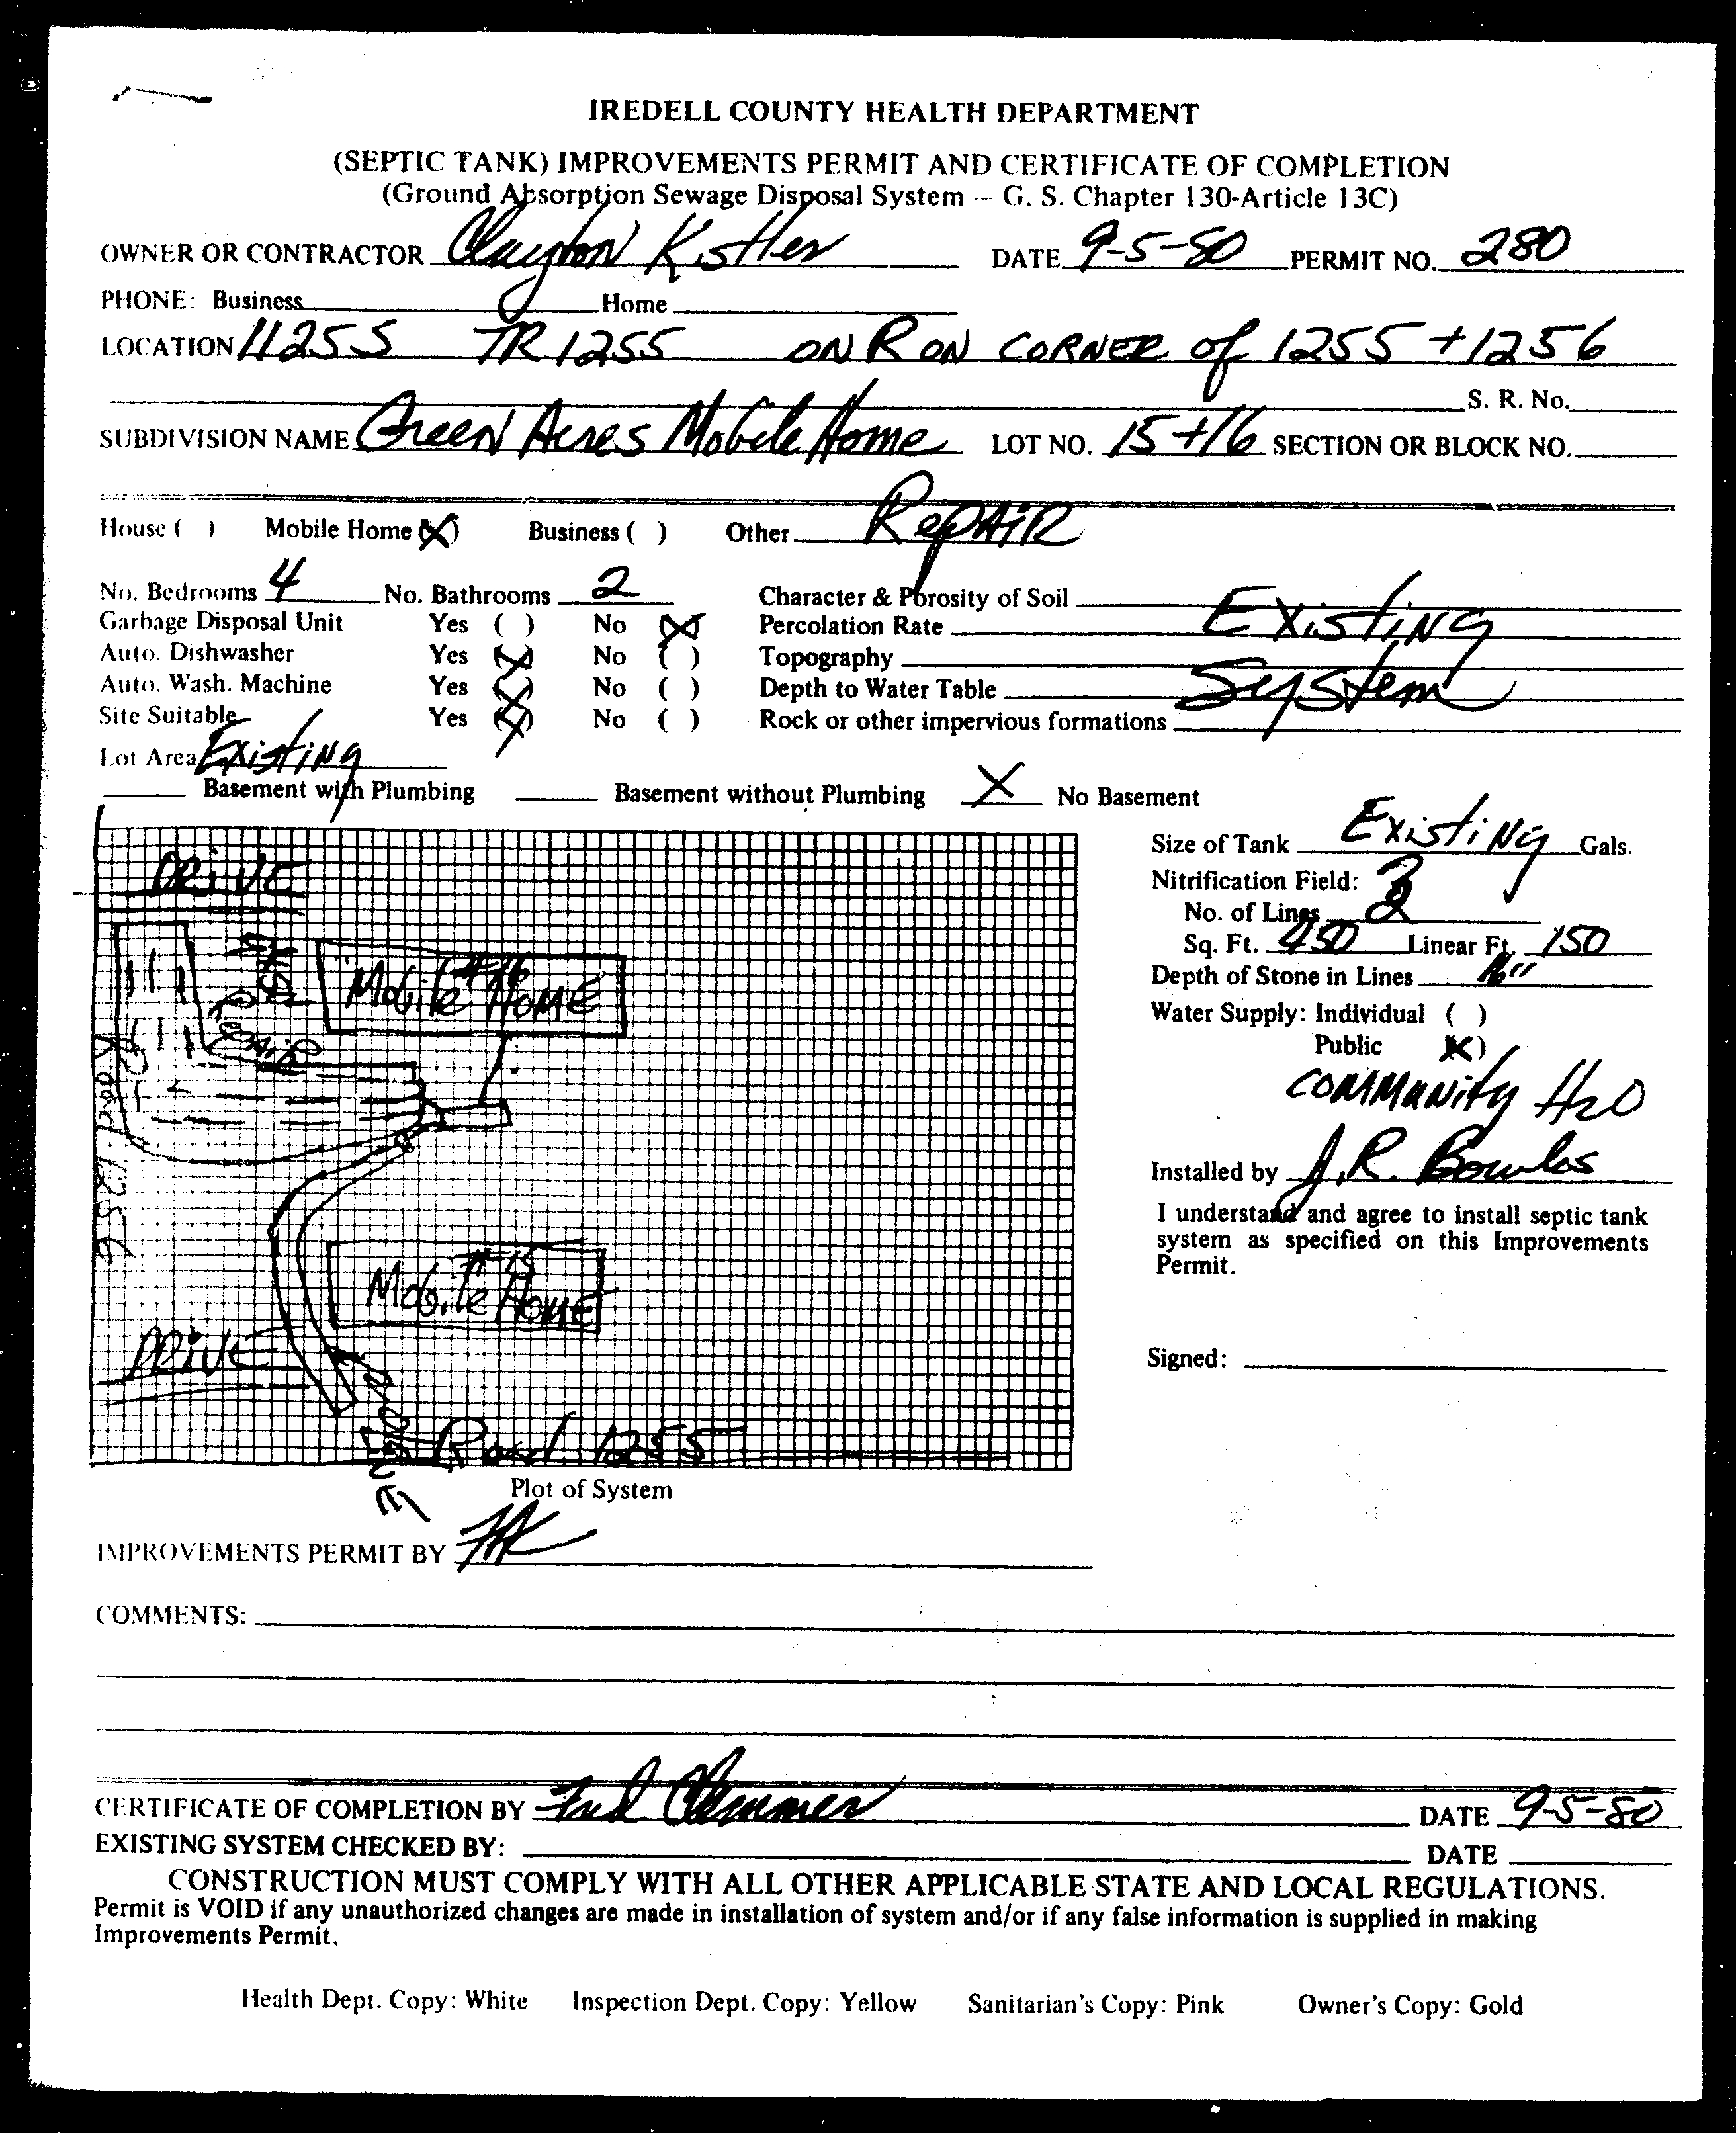 IREDELL COUNTY HEALTH DEPARTMENT
(SEPTIC TANK) IMPROVEMENTS PERMIT AND CERTIFICATE OF COMPLETION
(Ground Absorption Sewage Disposal System -- G. S. Chapter 130-Article 13C)
OWNER OR CONTRACTOR Clayton Kistler DATE 9-5-80 PERMIT NO. 280
PHONE: Business Home
LOCATION 1125S TR 1255 ON R ON CORNER of 1255 + 1256
S. R. No.
SUBDIVISION NAME Green Acres Mobile Home LOT NO. 15+16 SECTION OR BLOCK NO.
House ( ) Mobile Home (X) Business ( ) Other Repair
No. Bedrooms 4 No. Bathrooms 2 Character & Porosity of Soil
Garbage Disposal Unit Yes ( ) No (X) Percolation Rate Existing
Auto. Dishwasher Yes (X) No ( ) Topography
Auto. Wash. Machine Yes (X) No ( ) Depth to Water Table System
Site Suitable Yes (X) No ( ) Rock or other impervious formations
Lot Area Existing
Basement with Plumbing Basement without Plumbing X No Basement
Size of Tank Existing Gals.
Nitrification Field:
No. of Lines
Sq. Ft. 450 Linear Ft. 150
Depth of Stone in Lines
Water Supply: Individual ( )
Public (X)
Community H2O
Installed by J.R. Bowles
I understand and agree to install septic tank
system as specified on this Improvements
Permit.
Signed:
DRIVE
#16
Mobile Home
Road 1256
#15
Mobile Home
DRIVE
Road 1255
Plot of System
IMPROVEMENTS PERMIT BY
COMMENTS:
CERTIFICATE OF COMPLETION BY Fred Clemmer DATE 9-5-80
EXISTING SYSTEM CHECKED BY: DATE
CONSTRUCTION MUST COMPLY WITH ALL OTHER APPLICABLE STATE AND LOCAL REGULATIONS.
Permit is VOID if any unauthorized changes are made in installation of system and/or if any false information is supplied in making
Improvements Permit.
Health Dept. Copy: White Inspection Dept. Copy: Yellow Sanitarian's Copy: Pink Owner's Copy: Gold